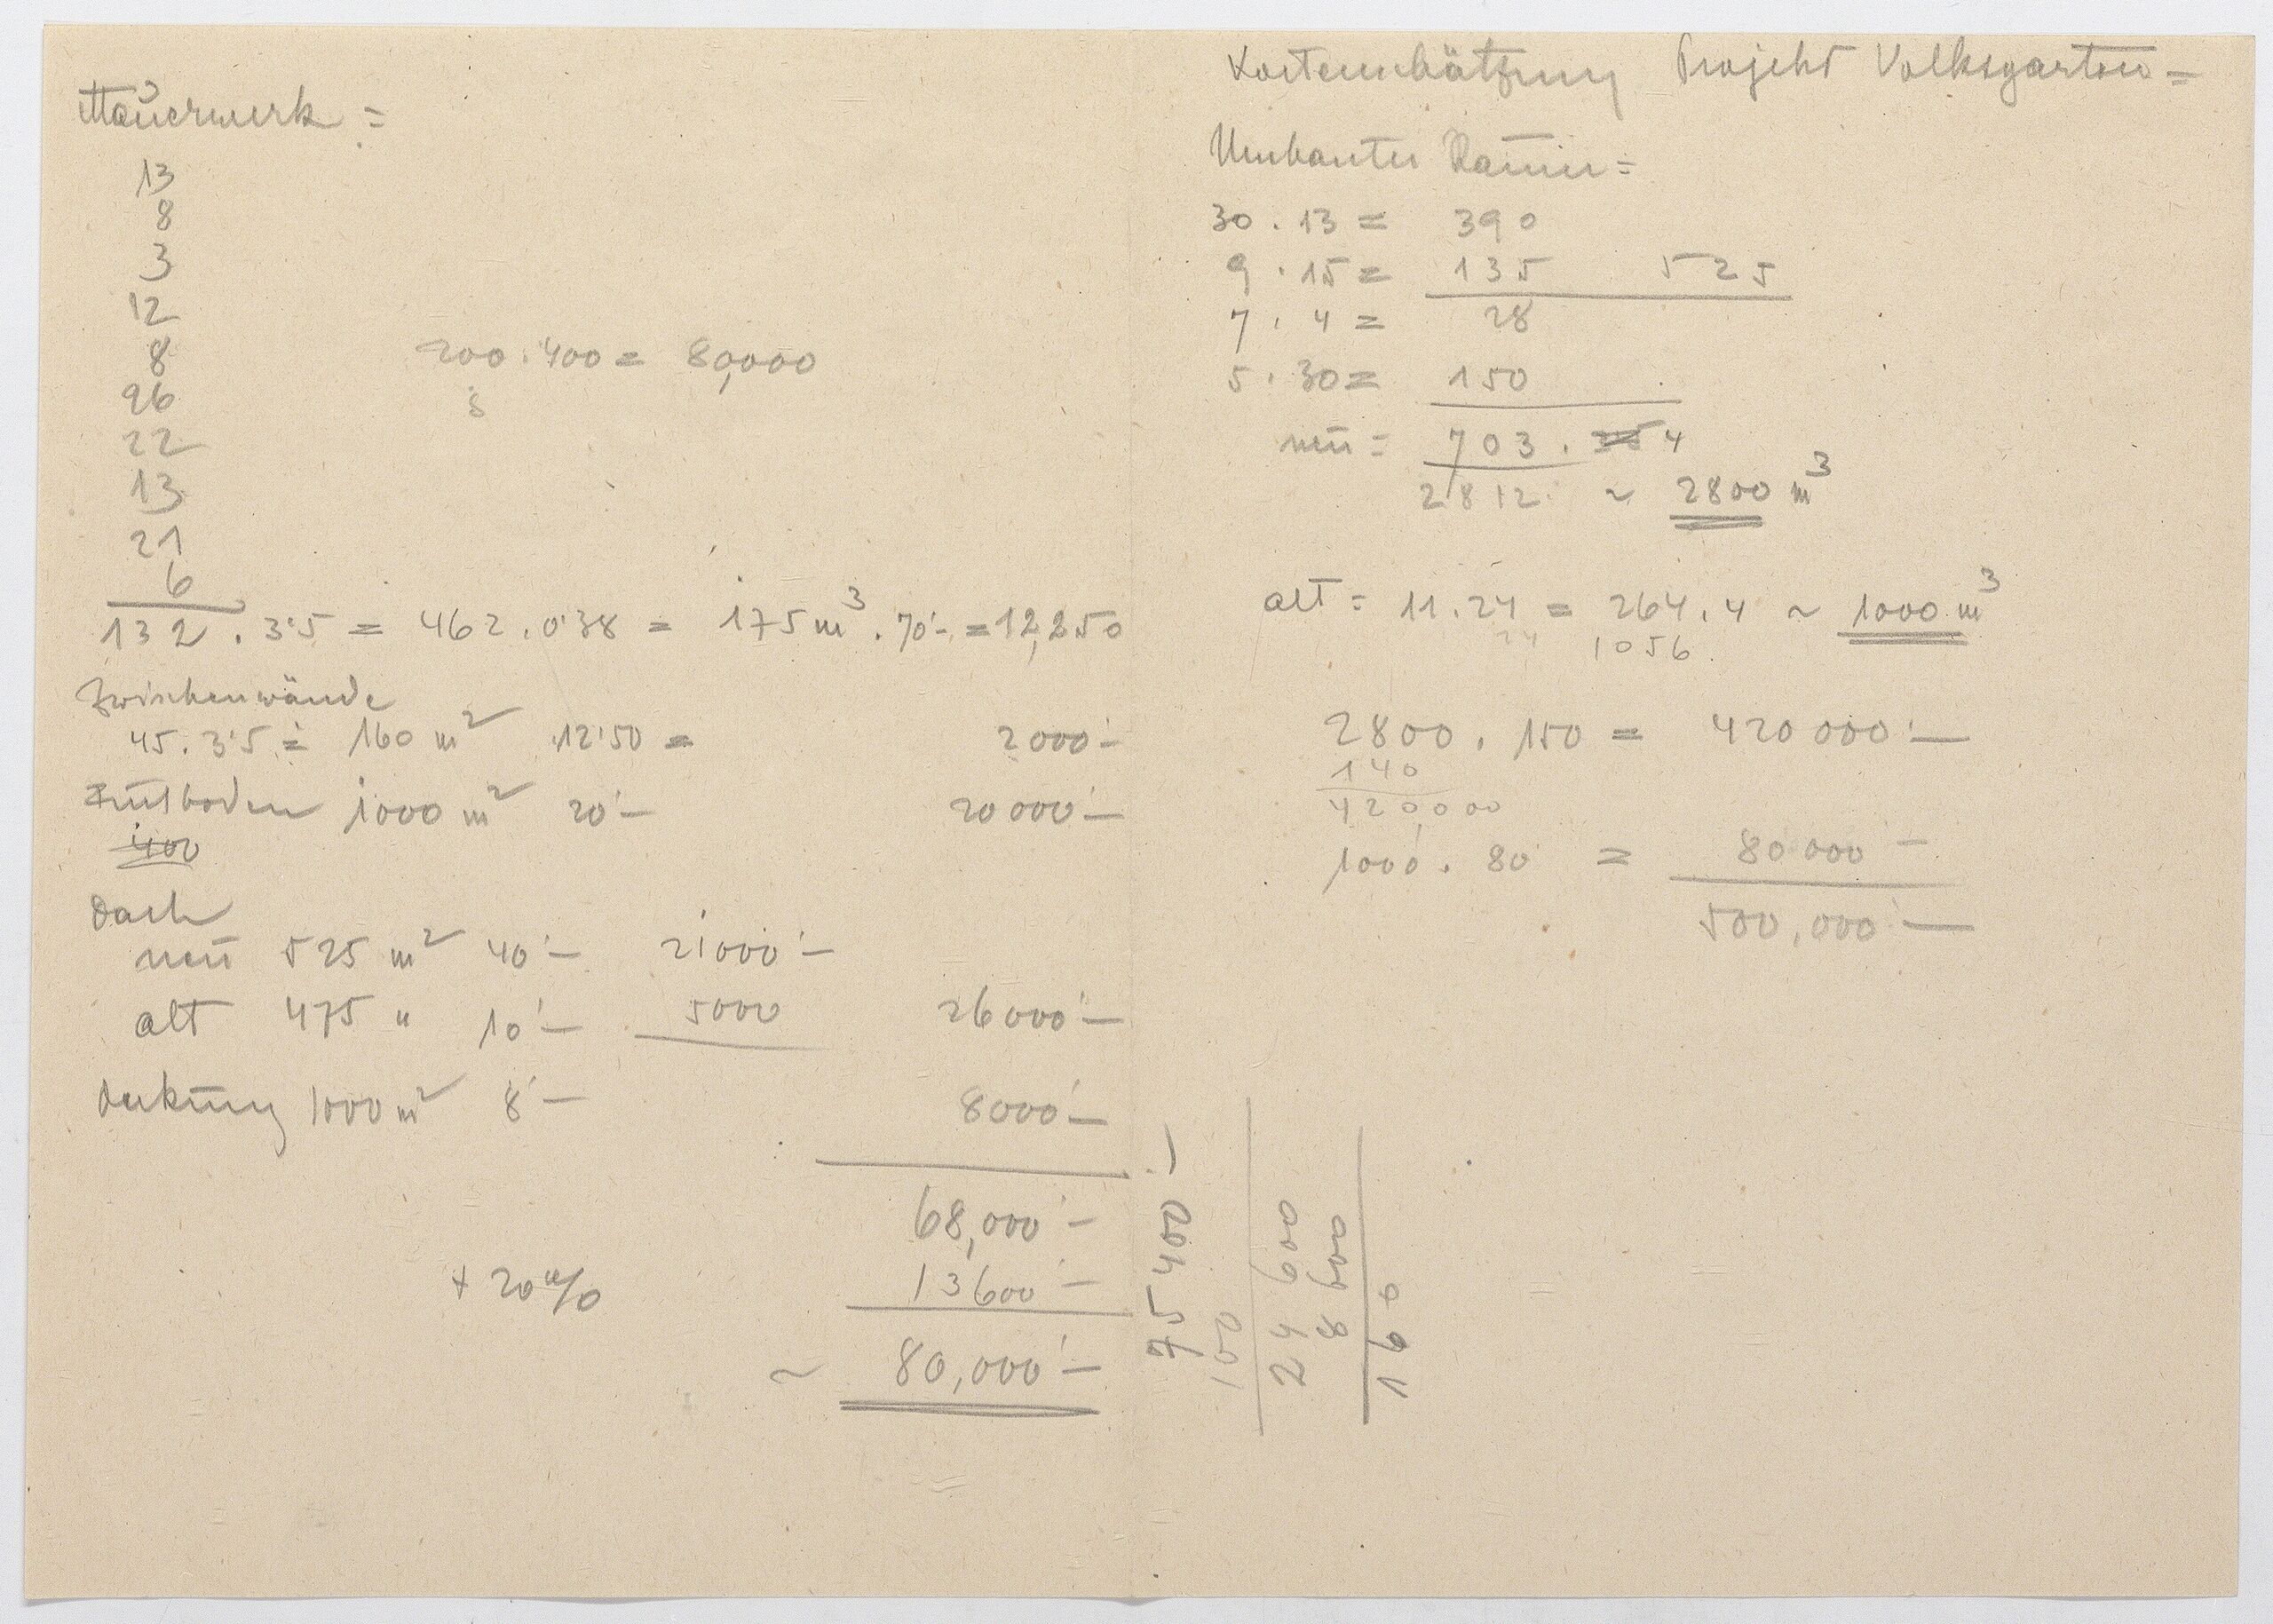 Mauerwerk =
13
8
3
12
8
26
22
13
21
6
132 . 3'5 = 462 . 0'38 = 175 m³ . 70'- = 12,250
200 . 400 = 80,000
Zwischenwände
45 . 3'5 = 160 m² . 12'50 = 2000'-
1000 m² 20'- 20 000'-
400
Dach
neu 525 m² 40'- 21000'-
alt 475 " 10'- 5000 26000'-
Deckung 1000 m² 8'- 8000'-
68,000'-
+ 20% 13600'-
~ 80,000'-
Kostenschätzung Projekt Volksgarten =
Umbauter Raum =
30 . 13 = 390
9 . 15 = 135 525
7 . 4 = 28
5 . 30 = 150
neu = 703 . 4
2812 ~ 2800 m³
alt = 11 . 24 = 264 . 4 ~ 1000 m³
24 1056
2800 . 150 = 420 000'-
140
420,000
1000 . 80 = 80 000'-
500,000'-
75 400'-
150
24 600
8 600
160